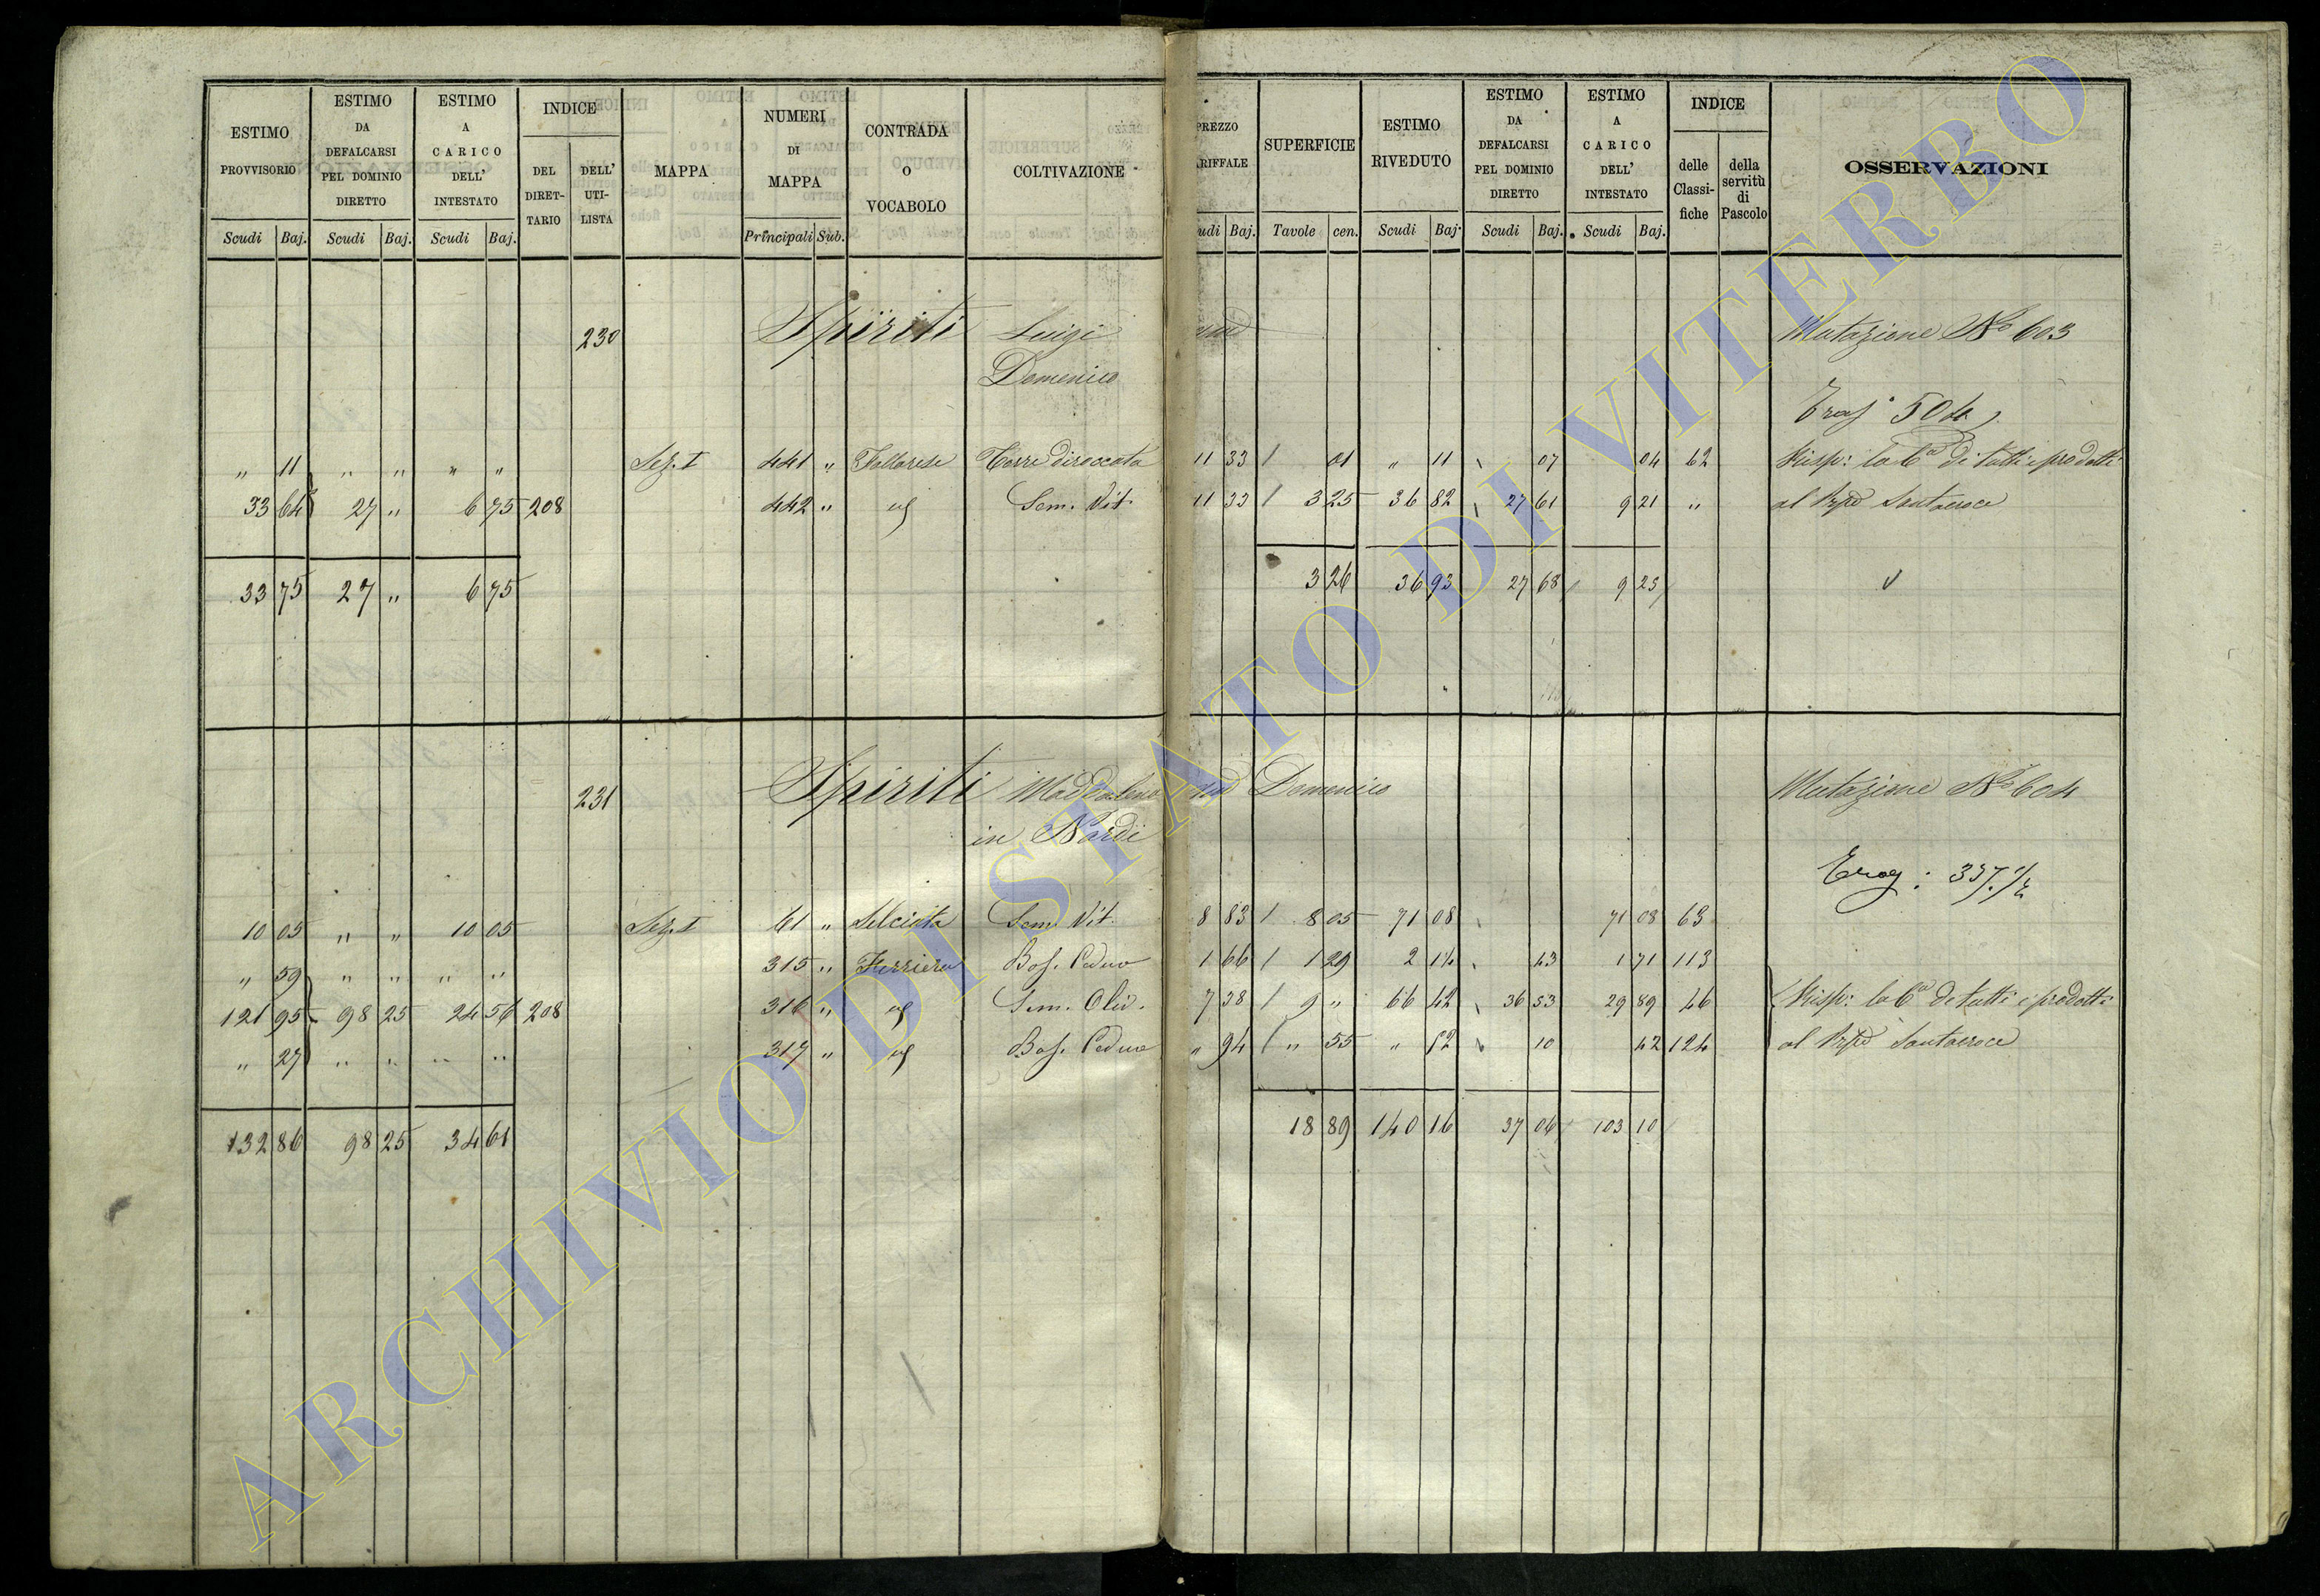 ESTIMO PROVVISORIO
ESTIMO DA DEFALCARSI PEL DOMINIO DIRETTO
ESTIMO A CARICO DELL' INTESTATO
INDICE
DEL DIRET-TARIO
DELL' UTI-LISTA
MAPPA
NUMERI DI MAPPA
CONTRADA O VOCABOLO
COLTIVAZIONE
PREZZO
RIFFALE
SUPERFICIE
ESTIMO RIVEDUTO
ESTIMO DA DEFALCARSI PEL DOMINIO DIRETTO
ESTIMO A CARICO DELL' INTESTATO
INDICE
delle Classi-fiche
della servitù di Pascolo
OSSERVAZIONI
Scudi Baj. Scudi Baj. Scudi Baj. Principali Sub. udi Baj. Tavole cen. Scudi Baj. Scudi Baj. Scudi Baj.
230 Spiriti Luigi Mutazione No 603
Domenico
504
" 11 " " " " Sez. I 441 " Tollarese Torre diroccata 11 33 / 01 " 11 07 04 62 Risp: la 6a di tutti i prodotti
33 64 27 " 6 75 208 442 " ug Sem. Vit. 11 33 / 3 25 36 82 27 61 9 21 " al Santacroce
33 75 27 " 6 75 3 26 36 93 27 68 9 25
231 Spiriti Maddalena Domenico Mutazione No 604
in Nardi
Erog: 337 1/2
10 05 " " 10 05 Sez. I 61 " Selciata Sem. Vit. 8 83 / 8 05 71 08 71 08 63
" 59 " " " " 315 " Ferriera Bos. Ceduo 1 66 / 1 29 2 14 43 1 71 113
121 95 98 25 24 56 208 316 " ug Sem. Oliv. 7 38 / 9 " 66 42 36 53 29 89 46 Risp: la 6a di tutti i prodotti
" 27 " " " " 317 " ug Bos. Ceduo " 94 / " 55 " 52 10 42 124 al Santacroce
132 86 98 25 34 61 18 89 140 16 37 06 103 10
ARCHIVIO DI STATO DI VITERBO